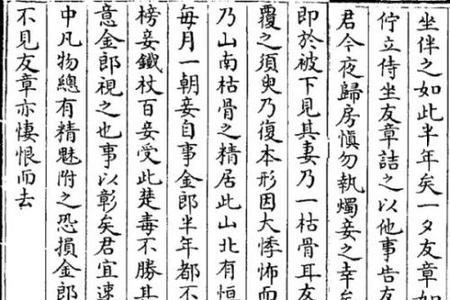 坐伴之如此半年矣一夕友章如
佇立侍坐友章詰之以他事告友
君今夜歸房慎勿執燭妾之幸矣
即於被下見其妻乃一枯骨耳友
覆之須臾乃復本形因大悸怖而
乃山南枯骨之精居此山北有恒
每月一朝妾自事金郎半年都不
榜妾鐵杖百妾受此楚毒不勝其
意金郎視之也事以彰矣君宜速
中凡物總有精魅附之恐損金郎
不見友章亦悽恨而去